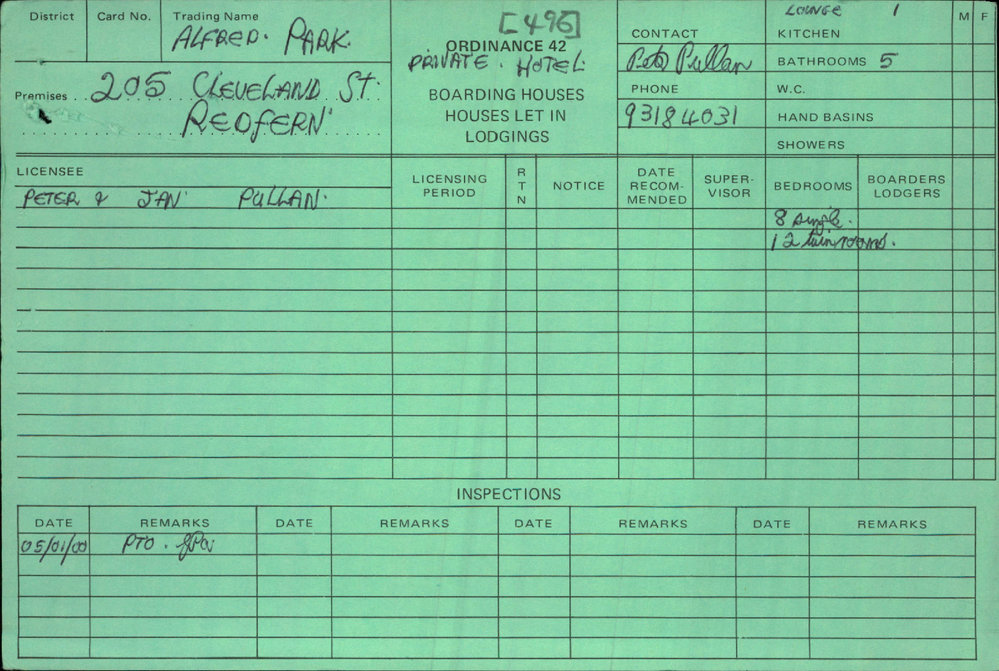 District
Card No.
Trading Name
ALFRED. PARK.
Premises
205 CLEVELAND ST.
REDFERN
[496]
ORDINANCE 42
PRIVATE. HOTEL.
BOARDING HOUSES
HOUSES LET IN
LODGINGS
CONTACT
Pullan
PHONE
93184031
LOUNGE 1
KITCHEN
BATHROOMS 5
W.C.
HAND BASINS
SHOWERS
M F
LICENSEE
LICENSING PERIOD
R T N
NOTICE
DATE RECOM- MENDED
SUPER- VISOR
BEDROOMS
BOARDERS LODGERS
PETER & JAN PULLAN.
8 single.
12 twin rooms.
INSPECTIONS
DATE REMARKS DATE REMARKS DATE REMARKS DATE REMARKS
05/01/00 PTO.